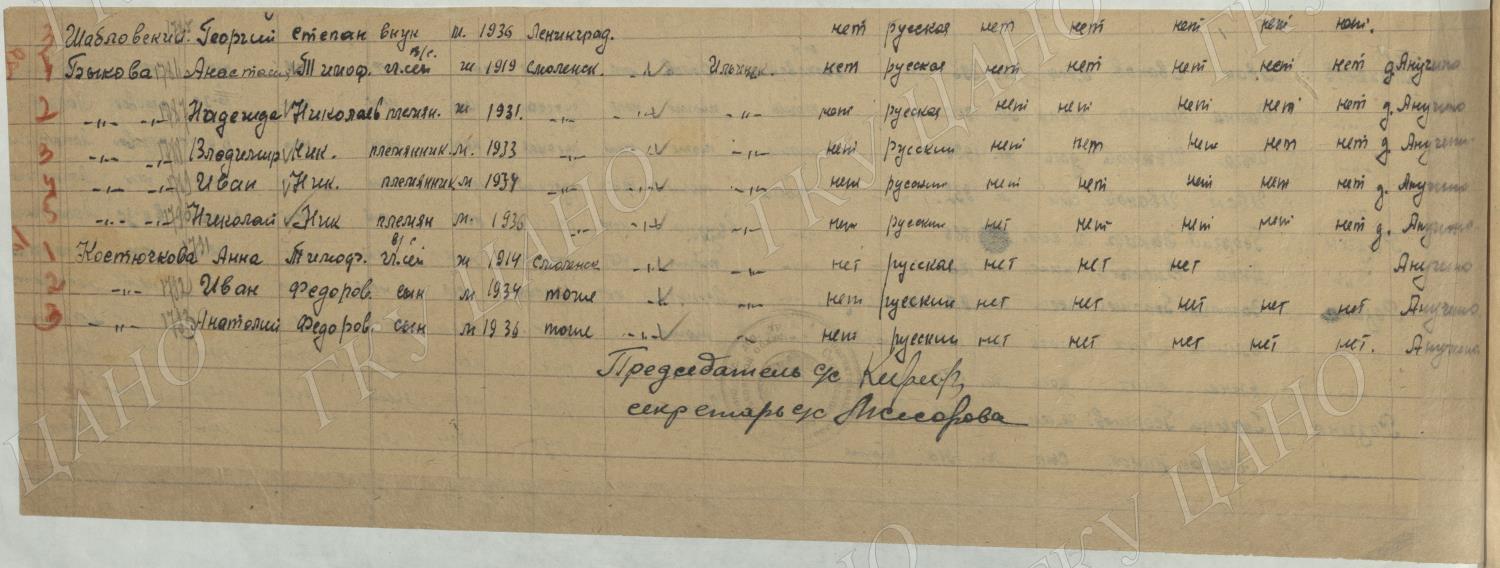 3 Шабловский Георгий Степан внук м. 1936 Ленинград. нет русская нет нет нет нет нет.
1 Быкова Анастасия Тимоф. гл.сем в/с. ж 1919 Смоленск. -"- Ильинск. нет русская нет нет нет нет нет д. Анучино
2 -"- -"- Надежда Николаев племян. ж 1931. -"- -"- -"- нет русская нет нет нет нет нет д. Анучино
3 -"- -"- Владимир Ник. племянник м. 1933 -"- -"- -"- нет русский нет нет нет нет нет д. Анучино
4 -"- -"- Иван Ник. племянник м 1934 -"- -"- -"- нет русский нет нет нет нет нет д. Анучино
5 -"- -"- Николай Ник племян м. 1936 -"- -"- -"- нет русский нет нет нет нет нет д. Анучино
1 Костючкова Анна Тимоф. гл.сем в/с ж 1914 Смоленск -"- -"- нет русская нет нет нет Анучино
2 -"- Иван Федоров. сын м 1934 тоже -"- -"- нет русский нет нет нет нет нет Анучино
3 -"- Анатолий Федоров. сын м 1936 тоже -"- -"- нет русский нет нет нет нет нет. Анучино
Председатель с/с
секретарь с/с
ГКУ ЦАНО